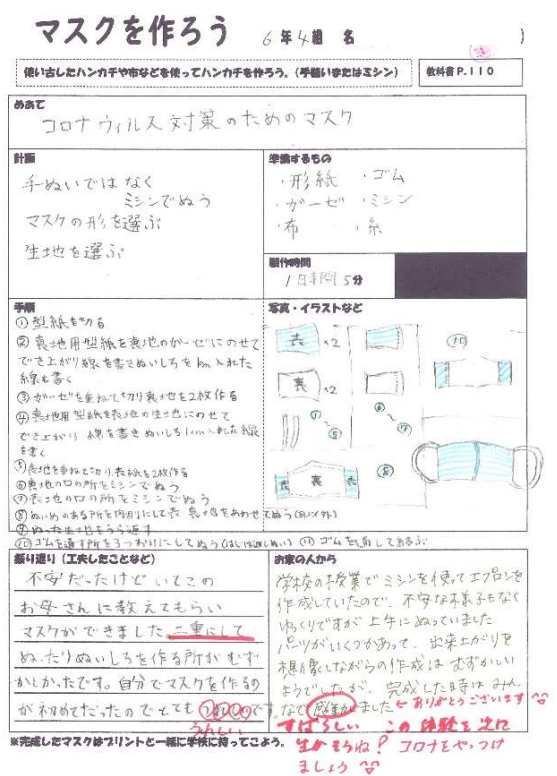 マスクを作ろう 6年4組 名
使い古したハンカチや布などを使ってハンカチを作ろう。(手縫いまたはミシン)
教科書P.110
めあて
コロナウィルス対策のためのマスク
計画
手ぬいではなく
ミシンでぬう
マスクの形を選ぶ
生地を選ぶ
準備するもの
・形紙 ・ゴム
・ガーゼ ・ミシン
・布 ・糸
製作時間
1日時間5分
手順
①型紙を切る
②裏地用型紙を裏地のガーゼにのせて
でき上がり線を書きぬいしろを1cm入れた
線も書く
③ガーゼを重ねて切り裏地を2枚作る
④表地用型紙を表地の生地にのせて
でき上がり線を書きぬいしろ1cm入れた線
を書く
⑤表地を重ねて切り、表紙を2枚作る
⑥裏地の口の所をミシンでぬう
⑦表地の口の所をミシンでぬう
⑧ぬいめのある所を内側にして表裏地をあわせてぬう
⑨ぬった生地をうら返す
⑩ゴムを通す所を3つおりにしてぬう
⑪ゴムを通して結ぶ
写真・イラストなど
表 ×2
裏 ×2
①
〜
⑤
⑥
〜
⑦
⑧
表 裏 表
⑩
振り返り(工夫したことなど)
不安だったけどいとこの
お母さんに教えてもらい
マスクができました。二重にして
ぬったりぬいしろを作る所がむず
かしかったです。自分でマスクを作るの
が初めてだったのでとても
うれしい
です。
お家の人から
学校の授業でミシンを使ってエプロンを
作成していたので、不安な様子もなく
ゆっくりですが上手にぬっていました
パーツがいくつかあって、出来上がりを
想像しながらの作成はむずかしい
ようでしたが、完成した時はみん
なで感動しました
←ありがとうございます
すばらしい この体験を次に
生かそうね? コロナをやっつけ
ましょう
※完成したマスクはプリントと一緒に学校に持ってこよう。